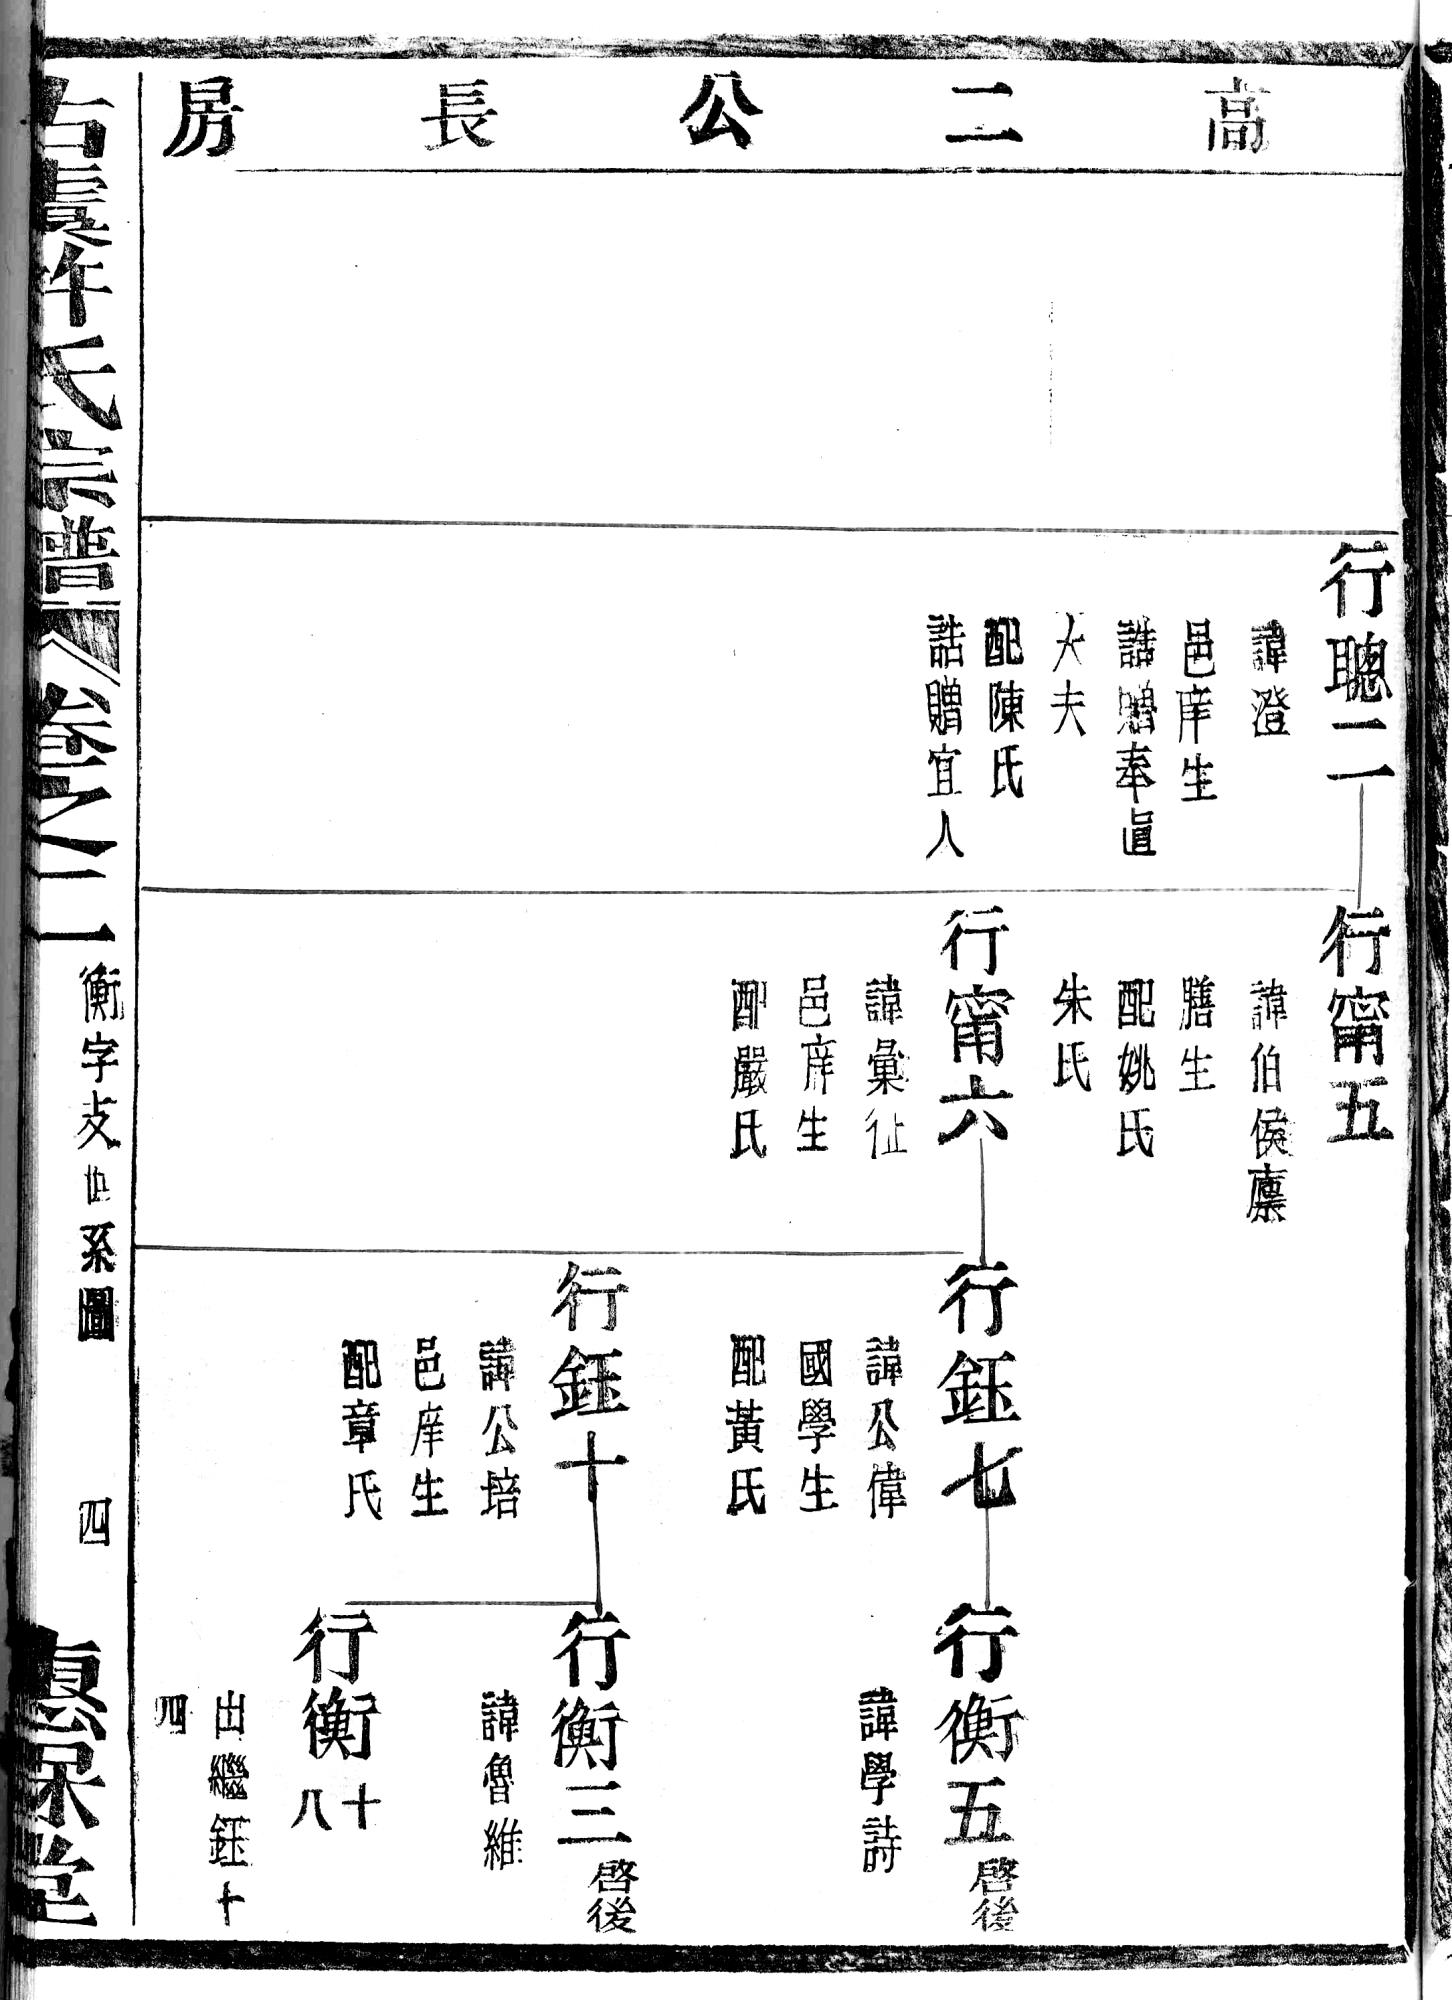 高二公長房
行聰二
諱澄
邑庠生
誥贈奉直
大夫
配陳氏
誥贈宜人
行甯五
諱伯侯廪
膳生
配姚氏
朱氏
行甯六
諱彙征
邑庠生
配嚴氏
行鈺七
諱公偉
國學生
配黃氏
行鈺十
諱公培
邑庠生
配章氏
行衡五
啓後
諱學詩
行衡三
啓後
諱魯維
行衡十八
出繼鈺十
四
古虞許氏宗譜
卷之二
衡字支世系圖
四